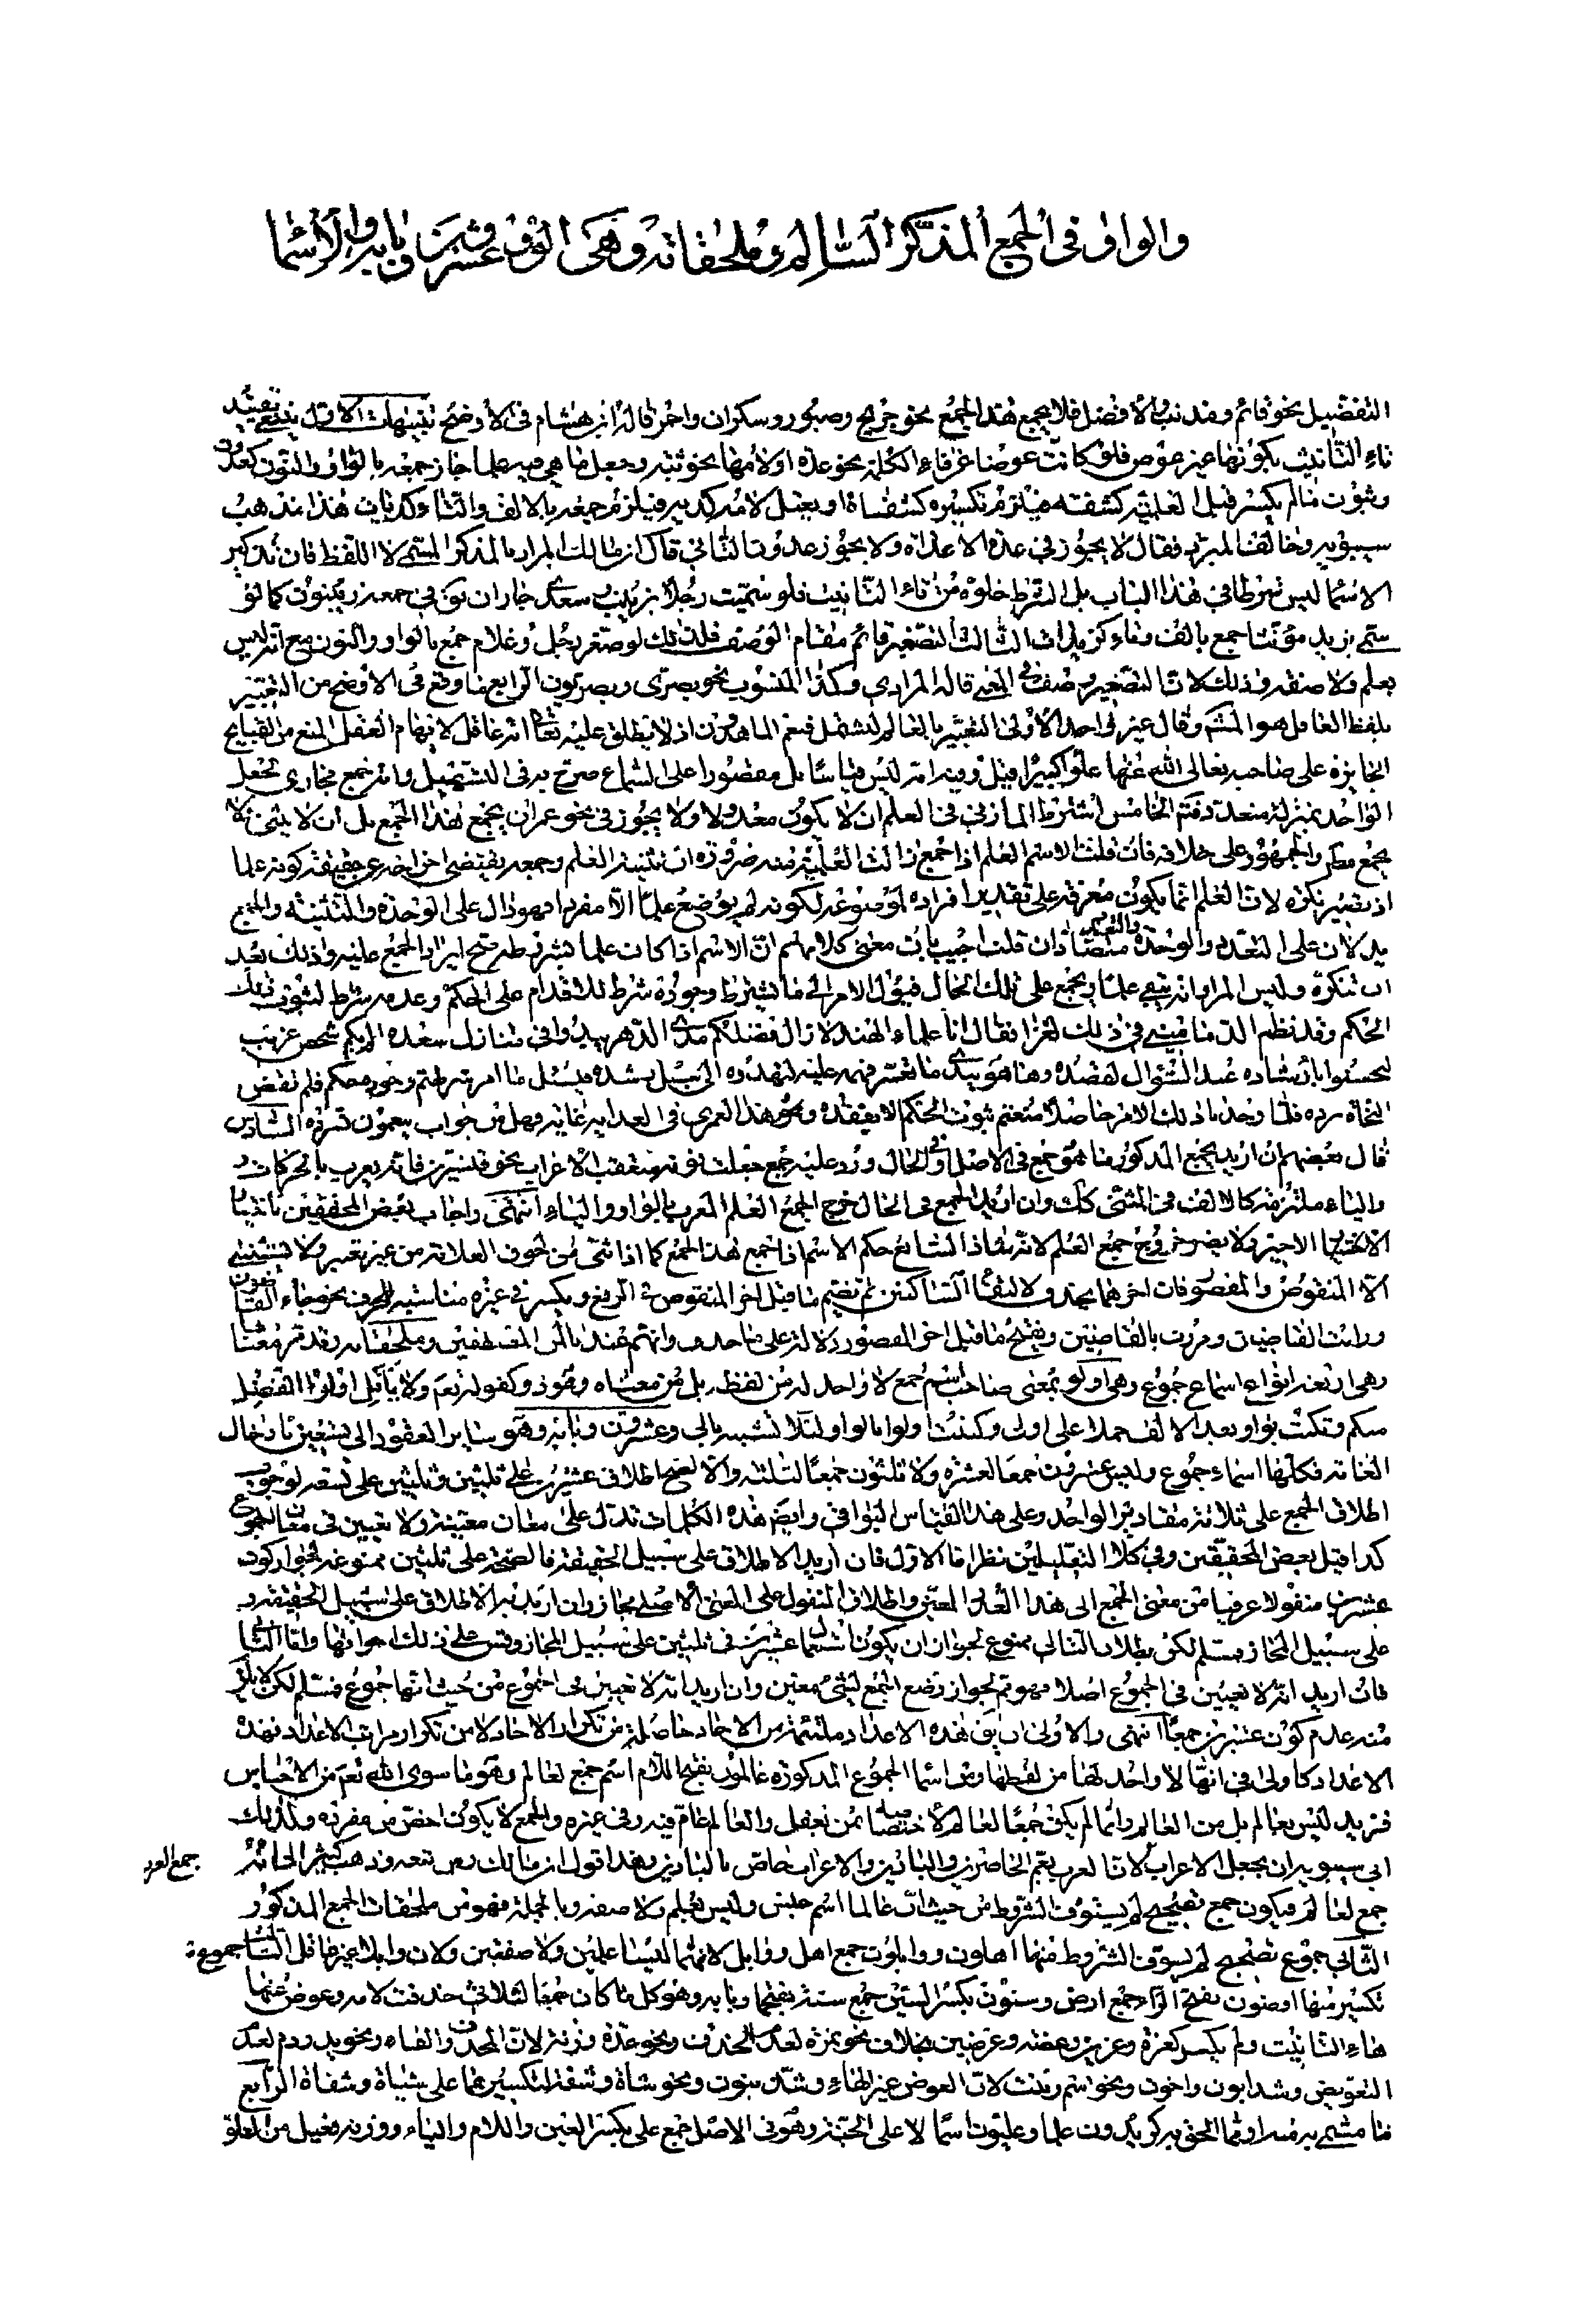 والواو في الجمع المذكر السالم وملحقاته وهي الو وعشرون وبابه والاسما
التفضيل نحو قائم ومذنب والافضل فلا يجمع هذا الجمع نحو جريح وصبور وسكران واحمر قاله ابن هشام في الاوضح تنبيهات الاول ينبغي تقييد
تاء التانيث بكونها غير عوض فلو كانت عوضا عن فاء الكلمة نحو عدة او لامها نحو ثبة وجعل ما هي فيه علما جاز جمعه بالواو والنون كعدون
وثبون ما لم يكسر قبل العلمية كشفة فيلزم تكسيره كشفاة او يعتل لامه كدية فيلزم جمعه بالالف والتاء كديات هذا مذهب
سيبويه وخالف المبرد فقال لا يجوز في عدة الا عدات ولا يجوز عدون الثاني قال ابن مالك المراد بالمذكر المسمى لا اللفظ فان تذكير
الاسما ليس شرطا في هذا الباب بل الشرط خلوه من تاء التانيث فلو سميت رجلا بزينب سعدى جاز ان تقول في جمعه زينبون كما لو
سمي بزيد مؤنث جمع بالف وتاء كزيدات الثالث التصغير قائم مقام الوصف فلذلك لو صغر رجل وغلام جمع بالواو والنون مع انه ليس
بعلم ولا صفة وذلك لان التصغير وصف في المعنى قاله المرادي وكذا المنسوب نحو بصرى وبصريون الرابع ما وقع في الاوضح من التعبير
بلفظ العاقل هو المشهور وقال غير واحد الاولى التعبير بالعالم ليشمل فنعم الماهدون اذ لا يطلق عليه تعالى انه عاقل لايهام العقل المنع من القبايح
الجايزة على صاحبه تعالى الله عنها علوا كبيرا قيل وفيه انه ليس قياسا بل مقصورا على السماع صرح به في التسهيل وانه جمع مجازى لجعل
الواحد بمنزلة متعدد فتم الخامس اشترط المازني في العلم ان لا يكون معدولا ولا يجوز في نحو عمر ان يجمع هذا الجمع بل ان لا يثنى ولا
يجمع مطلقا والجمهور على خلافه فان قلت الاسم العلم اذا جمع زالت العلمية منه ضرورة ان تثنية العلم وجمعه يقتضى اخراجه عن حقيقة كونه علما
اذ يصير نكرة لان العلم انما يكون معرفة على تقدير افراده لموضوعه لكونه لم يوضع علما الا مفردا فهو دال على الوحدة والتثنية والجمع
يدلان على التعدد والوحدة والتعدد متضادان قلت اجيب بان معنى كلامهم ان الاسم اذا كان علما بشرطه صح ايراد الجمع عليه وذلك بعد
ان تنكره وليس المراد انه يبقى علما ويجمع على تلك الحال فيؤل الامر الى ما يشترط وجوده شرط للاقدام على الحكم وعدمه شرط لثبوت ذلك
الحكم وقد نظم الدماميني في ذلك لغزا فقال ايا علماء الهند لا زال فضلكم مدى الدهر يبدو في منازل سعده الم بكم شخص غريب
لتحسنوا بارشاده عند السؤال لقصده وها هو يبدى ما تعسر فهمه عليه لتهدوه الى سبيل رشده فيسئل ما امر شرطتم وجوده لحكم فلم تقض
النحاة برده فلما وجدنا ذلك الامر حاصلا منعتم ثبوت الحكم الا بفقده وهذا لعمري في الغرابة غاية فهل من جواب ينعمون بسرده السادس
قال بعضهم ان اريد بجمع المذكور ما هو جمع في الاصل او في الحال ورد عليه جمع جعلت نونه متعقب الاعراب نحو قنسرين فانه يعرب بالحركات
والياء ملتزمة كالالف في المثنى كذلك وان اريد الجمع في الحال خرج الجمع العلم المعرب بالواو والياء انتهى واجاب بعض المحققين باختيار
الشق الاخير ولا يضر خروج جمع العلم لانه شاذ السابع حكم الاسم اذا جمع هذا الجمع كما اذا ثنى من لحوق العلامة من غير تغيير ولا يستثنى
الا المنقوص والمقصور فان اخرهما يحذف لالتقاء الساكنين ثم يضم ما قبل اخر المنقوص في الرفع ويكسر في غيره مناسبة للحرف نحو جاء القاضون
ورايت القاضين ومررت بالقاضين ويفتح ما قبل اخر المقصور دلالة على ما حذف وانهم عندنا لمن المصطفين وملحقاته وقد مر معناها
وهي اربعة انواع اسماء جموع وهي اولو بمعنى صاحب اسم جمع لا واحد له من لفظه بل من معناه وهو ذو وكقوله نعم ولا ياتل اولوا الفضل
منكم وتكتب بواو بعد الالف حملا على اولى وكتبت اولى بالواو لئلا تشتبه بالى وعشرون وبابه وهو سائر العقود الى تسعين بادخال
الغاية فكلها اسماء جموع وليس عشرون جمعا لعشرة ولا ثلثون جمعا لثلثة والا لصح اطلاق عشرين على ثلثين وثلثين على تسعة لوجوب
اطلاق الجمع على ثلاثة مقادير الواحد وعلى هذا القياس البواقي وايضا هذه الكلمات تدل على معان معينة ولا تعيين في معان الجموع
كذا قيل بعض المحققين وفي كلا التعليلين نظر اما الاول فان اريد الاطلاق على سبيل الحقيقة فالصحة على ثلثين ممنوعة لجواز كون
عشرين منقولا عرفيا من معنى الجمع الى هذا العدد المعين واطلاق المنقول على المعنى الاصلى مجاز وان اريد به الاطلاق على سبيل الحقيقة او
على سبيل المجاز فمسلم لكن بطلان التالى ممنوع لجواز ان يكون استعمال عشرين في ثلثين على سبيل المجاز وقس على ذلك اخواتها واما الثاني
فان اريد انه لا تعيين في الجموع اصلا فهو ثم لجواز وضع الجمع لشيء معين وان اريد انه لا تعيين في الجموع من حيث انها جموع فمسلم لكن لا يلزم
منه عدم كون عشرين جمعا انتهى والاولى ان يق هذه الاعداد ملتئمة من الاحاد حاصلة من تكرار الاحاد لا من تكرار مراتب الاعداد فهذه
الاعداد كاولى في انها لا واحد لها من لفظها ومن اسما الجموع المذكورة عالمون بفتح اللام اسم جمع لعالم وهو ما سوى الله نعم من الاجناس
فزيد ليس بعالم بل من العالم وانما لم يكن جمعا لعالم لاختصاصه بمن يعقل والعالم عام فيه وفي غيره والجمع لا يكون اخص من مفرده وكذلك
ابى سيبويه ان يجعل الاعراب لان العرب يعم الحاضرين والبادين والاعراب خاص بالبادين وهذا قول ابن مالك ومن تبعه وذهب كثير الى انه
جمع لعالم فيكون جمع تصحيح لم يستوف الشروط من حيث ان عالما اسم جنس وليس بعلم ولا صفة وبالجملة فهو من ملحقات الجمع المذكور
الثاني جموع تصحيح لم يستوف الشروط منها اهلون ووابلون جمع اهل ووابل لانهما ليسا علمين ولا صفتين ولان وابلا غير عاقل الثالث جموع
تكسير منها ارضون بفتح الراء جمع ارض وسنون بكسر السين جمع سنة بفتحها وبابه وهو كل ما كان جمعا لثلاثى حذفت لامه وعوض عنها
هاء التانيث ولم يكسر كعزة وعزين وعضة وعضين بخلاف نحو تمرة لعدم الحذف ونحو عدة وزنة لان المحذوف الفاء ونحو يد ودم لعدم
التعويض وشذ ابون واخون ونحو اسم وبنت لان العوض غير الهاء وشذ بنون ونحو شاة وشفة لتكسيرهما على شياة وشفاة الرابع
ما سمي به منه او مما الحق به كزيدون علما وعليون اسما لا على الجنة وهو في الاصل جمع على بكسر العين واللام والياء ووزنه فعيل من العلو